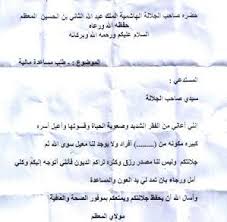 حضره صاحب الجلالة الهاشمية الملك عبد الله الثاني بن الحسين المعظم
حفظه الله ورعاه
السلام عليكم ورحمه الله وبركاته
الموضوع : طلب مساعدة مالية
المستدعي :
سيدي صاحب الجلالة
انني أعاني من الفقر الشديد وصعوبة الحياة وقسوتها وأعيل أسره
كبيره مكونه من (.........) أفراد ولا يوجد لنا معيل سوى الله ثم
جلالتكم وليس لنا مصدر رزق وكثره تراكم الديون فأنني أتوجه إليكم وكلي
أمل ورجاء بإن تمد لي يد العون والمساعدة
وأسأل الله أن يحفظ جلالتكم ويمتعكم بموفور الصحة والعافية
مولاي المعظم